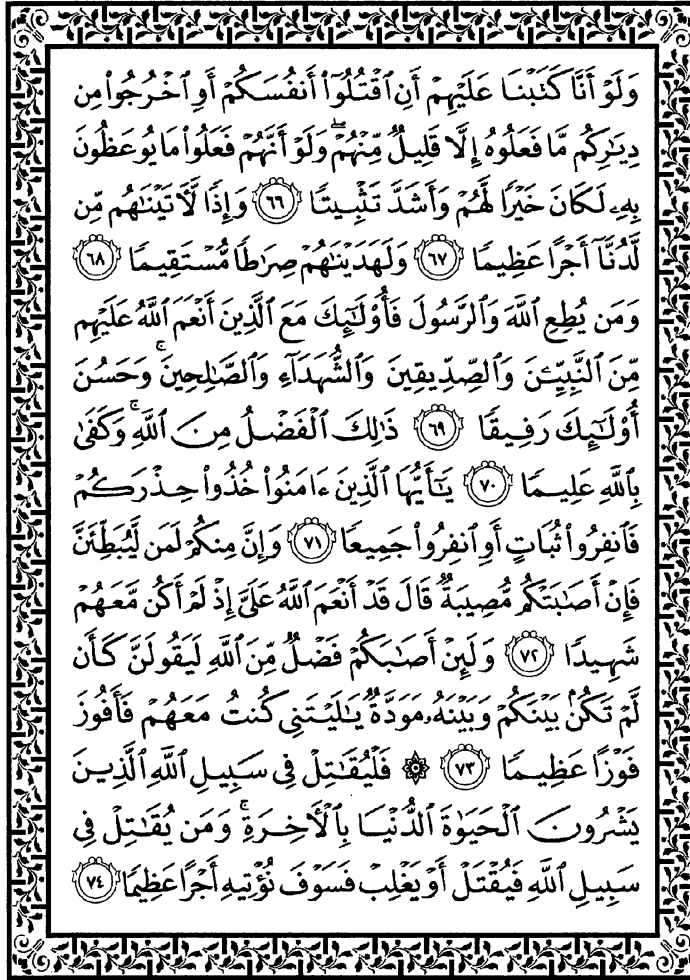 وَلَوْ أَنَّا كَتَبْنَا عَلَيْهِمْ أَنِ ٱقْتُلُوٓا۟ أَنفُسَكُمْ أَوِ ٱخْرُجُوا۟ مِن
دِيَٰرِكُم مَّا فَعَلُوهُ إِلَّا قَلِيلٌ مِّنْهُمْ ۖ وَلَوْ أَنَّهُمْ فَعَلُوا۟ مَا يُوعَظُونَ
بِهِۦ لَكَانَ خَيْرًا لَّهُمْ وَأَشَدَّ تَثْبِيتًا ٦٦ وَإِذًا لَّءَاتَيْنَٰهُم مِّن
لَّدُنَّآ أَجْرًا عَظِيمًا ٦٧ وَلَهَدَيْنَٰهُمْ صِرَٰطًا مُّسْتَقِيمًا ٦٨
وَمَن يُطِعِ ٱللَّهَ وَٱلرَّسُولَ فَأُو۟لَٰٓئِكَ مَعَ ٱلَّذِينَ أَنْعَمَ ٱللَّهُ عَلَيْهِم
مِّنَ ٱلنَّبِيِّـۧنَ وَٱلصِّدِّيقِينَ وَٱلشُّهَدَآءِ وَٱلصَّٰلِحِينَ ۚ وَحَسُنَ
أُو۟لَٰٓئِكَ رَفِيقًا ٦٩ ذَٰلِكَ ٱلْفَضْلُ مِنَ ٱللَّهِ ۚ وَكَفَىٰ
بِٱللَّهِ عَلِيمًا ٧٠ يَٰٓأَيُّهَا ٱلَّذِينَ ءَامَنُوا۟ خُذُوا۟ حِذْرَكُمْ
فَٱنفِرُوا۟ ثُبَاتٍ أَوِ ٱنفِرُوا۟ جَمِيعًا ٧١ وَإِنَّ مِنكُمْ لَمَن لَّيُبَطِّئَنَّ
فَإِنْ أَصَٰبَتْكُم مُّصِيبَةٌ قَالَ قَدْ أَنْعَمَ ٱللَّهُ عَلَىَّ إِذْ لَمْ أَكُن مَّعَهُمْ
شَهِيدًا ٧٢ وَلَئِنْ أَصَٰبَكُمْ فَضْلٌ مِّنَ ٱللَّهِ لَيَقُولَنَّ كَأَن
لَّمْ تَكُنۢ بَيْنَكُمْ وَبَيْنَهُۥ مَوَدَّةٌ يَٰلَيْتَنِى كُنتُ مَعَهُمْ فَأَفُوزَ
فَوْزًا عَظِيمًا ٧٣ ۞ فَلْيُقَٰتِلْ فِى سَبِيلِ ٱللَّهِ ٱلَّذِينَ
يَشْرُونَ ٱلْحَيَوٰةَ ٱلدُّنْيَا بِٱلْءَاخِرَةِ ۚ وَمَن يُقَٰتِلْ فِى
سَبِيلِ ٱللَّهِ فَيُقْتَلْ أَوْ يَغْلِبْ فَسَوْفَ نُؤْتِيهِ أَجْرًا عَظِيمًا ٧٤